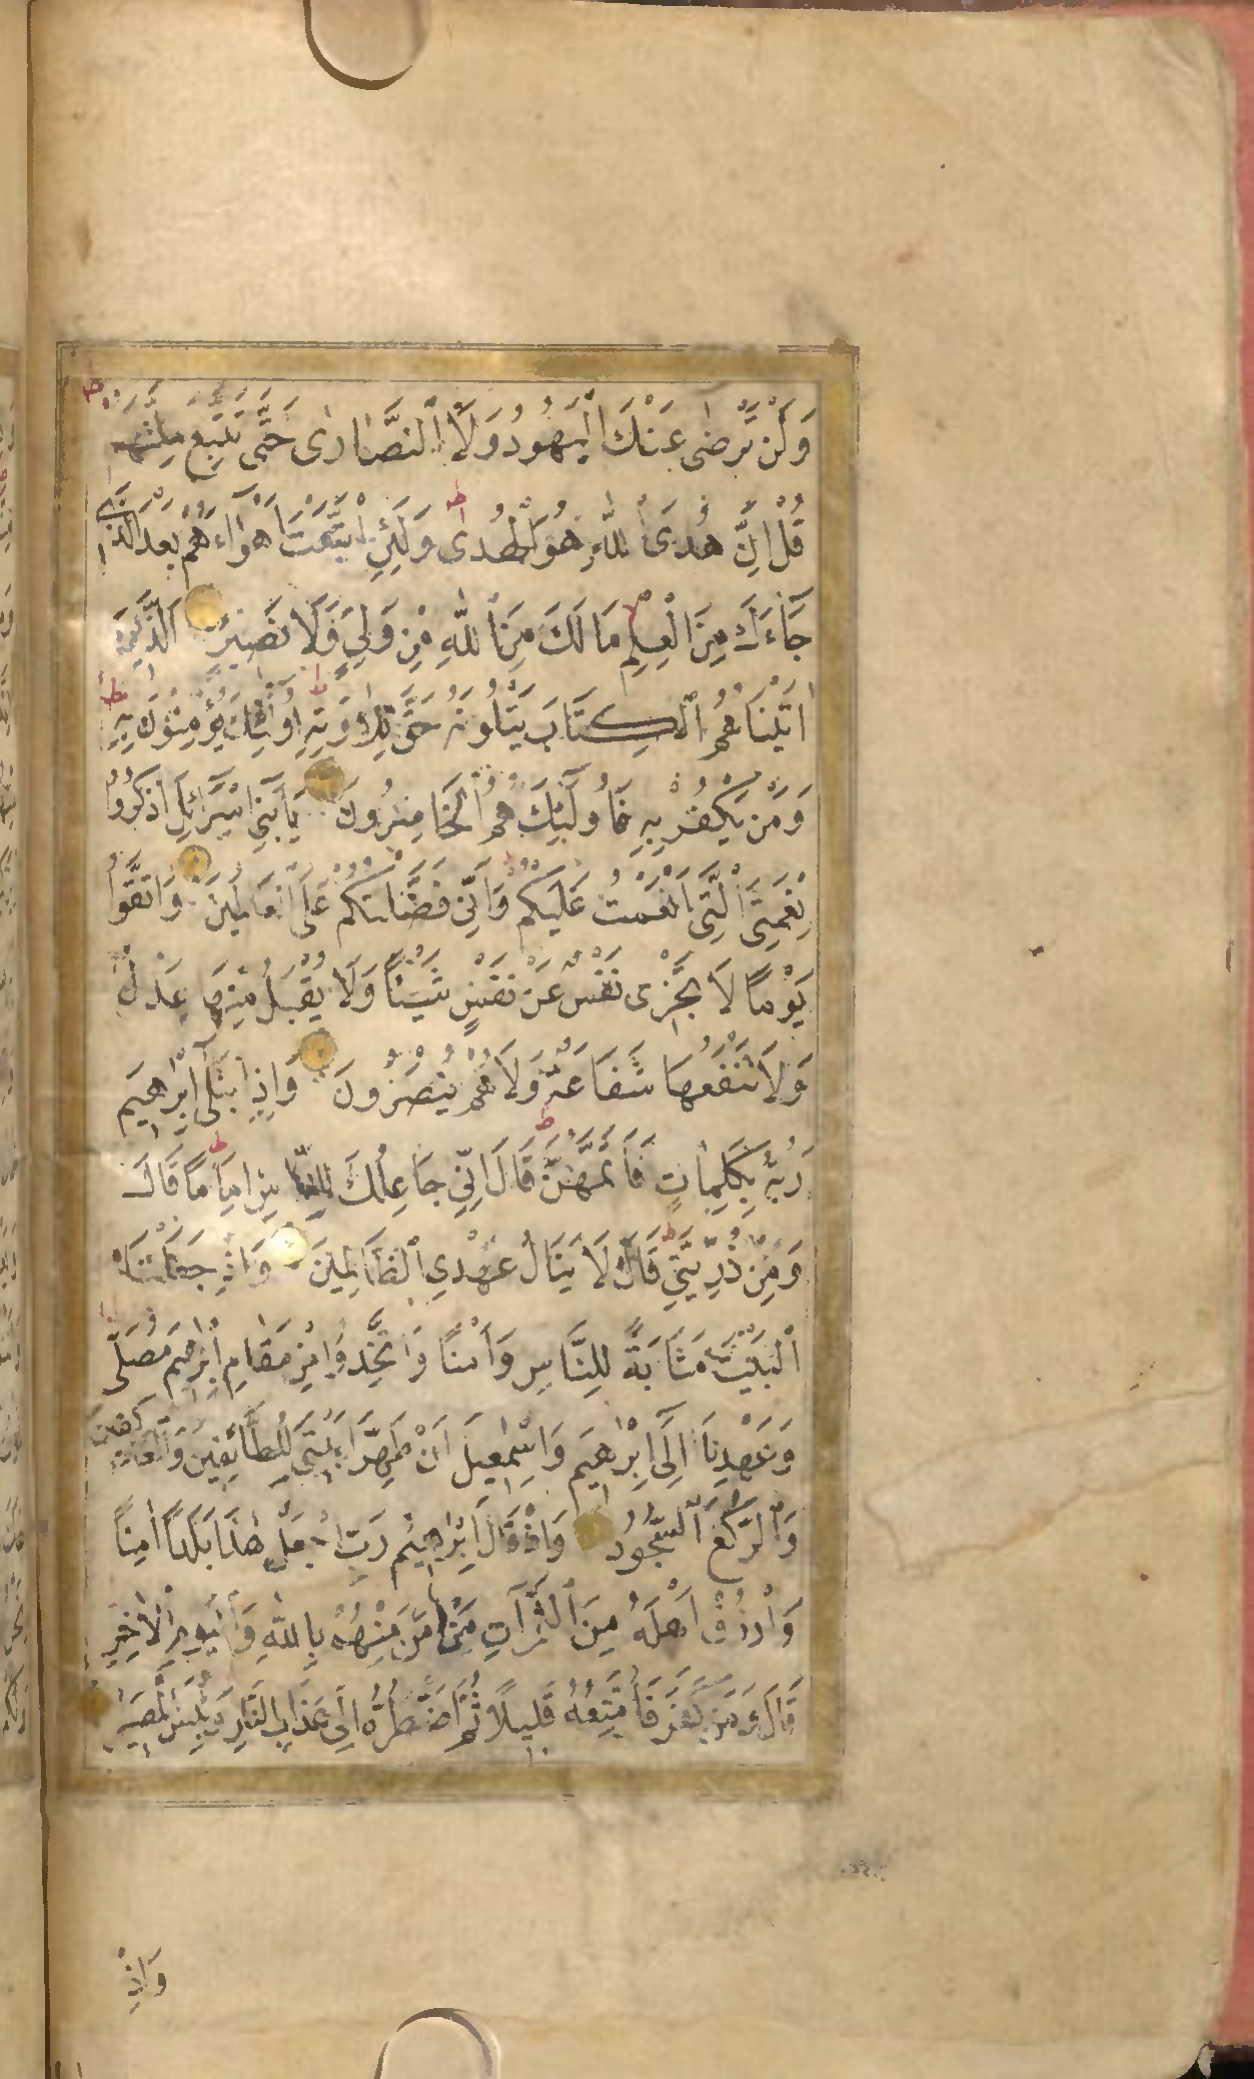 وَلَنْ تَرْضٰى عَنْكَ الْيَهُودُ وَلَا النَّصَارٰى حَتّٰى تَتَّبِعَ مِلَّتَهُمْ
قُلْ اِنَّ هُدَى اللّٰهِ هُوَ الْهُدٰى وَلَئِنِ اتَّبَعْتَ اَهْوَآءَهُمْ بَعْدَ الَّذِى
جَآءَكَ مِنَ الْعِلْمِ مَا لَكَ مِنَ اللّٰهِ مِنْ وَلِيٍّ وَلَا نَصِيرٍ اَلَّذِينَ
اٰتَيْنَاهُمُ الْكِتَابَ يَتْلُونَهُ حَقَّ تِلَاوَتِهِ اُولٰئِكَ يُؤْمِنُونَ بِهِ
وَمَنْ يَكْفُرْ بِهِ فَاُولٰئِكَ هُمُ الْخَاسِرُونَ يَابَنِى اِسْرَائِلَ اذْكُرُوا
نِعْمَتِىَ الَّتِى اَنْعَمْتُ عَلَيْكُمْ وَاَنِّى فَضَّلْتُكُمْ عَلَى الْعَالَمِينَ وَاتَّقُوا
يَوْمًا لَا تَجْزِى نَفْسٌ عَنْ نَفْسٍ شَيْئًا وَلَا يُقْبَلُ مِنْهَا عَدْلٌ
وَلَا تَنْفَعُهَا شَفَاعَةٌ وَلَا هُمْ يُنْصَرُونَ وَاِذِ ابْتَلٰى اِبْرٰهِيمَ
رَبُّهُ بِكَلِمَاتٍ فَاَتَمَّهُنَّ قَالَ اِنِّى جَاعِلُكَ لِلنَّاسِ اِمَامًا قَالَ
وَمِنْ ذُرِّيَّتِى قَالَ لَا يَنَالُ عَهْدِى الظَّالِمِينَ وَاِذْ جَعَلْنَا
الْبَيْتَ مَثَابَةً لِلنَّاسِ وَاَمْنًا وَاتَّخِذُوا مِنْ مَقَامِ اِبْرٰهِيمَ مُصَلًّى
وَعَهِدْنَا اِلٰى اِبْرٰهِيمَ وَاِسْمٰعِيلَ اَنْ طَهِّرَا بَيْتِىَ لِلطَّائِفِينَ وَالْعَاكِفِينَ
وَالرُّكَّعِ السُّجُودِ وَاِذْ قَالَ اِبْرٰهِيمُ رَبِّ اجْعَلْ هٰذَا بَلَدًا اٰمِنًا
وَارْزُقْ اَهْلَهُ مِنَ الثَّمَرَاتِ مَنْ اٰمَنَ مِنْهُمْ بِاللّٰهِ وَالْيَوْمِ الْاٰخِرِ
قَالَ وَمَنْ كَفَرَ فَاُمَتِّعُهُ قَلِيلًا ثُمَّ اَضْطَرُّهُ اِلٰى عَذَابِ النَّارِ وَبِئْسَ الْمَصِيرُ
وَاِذْ